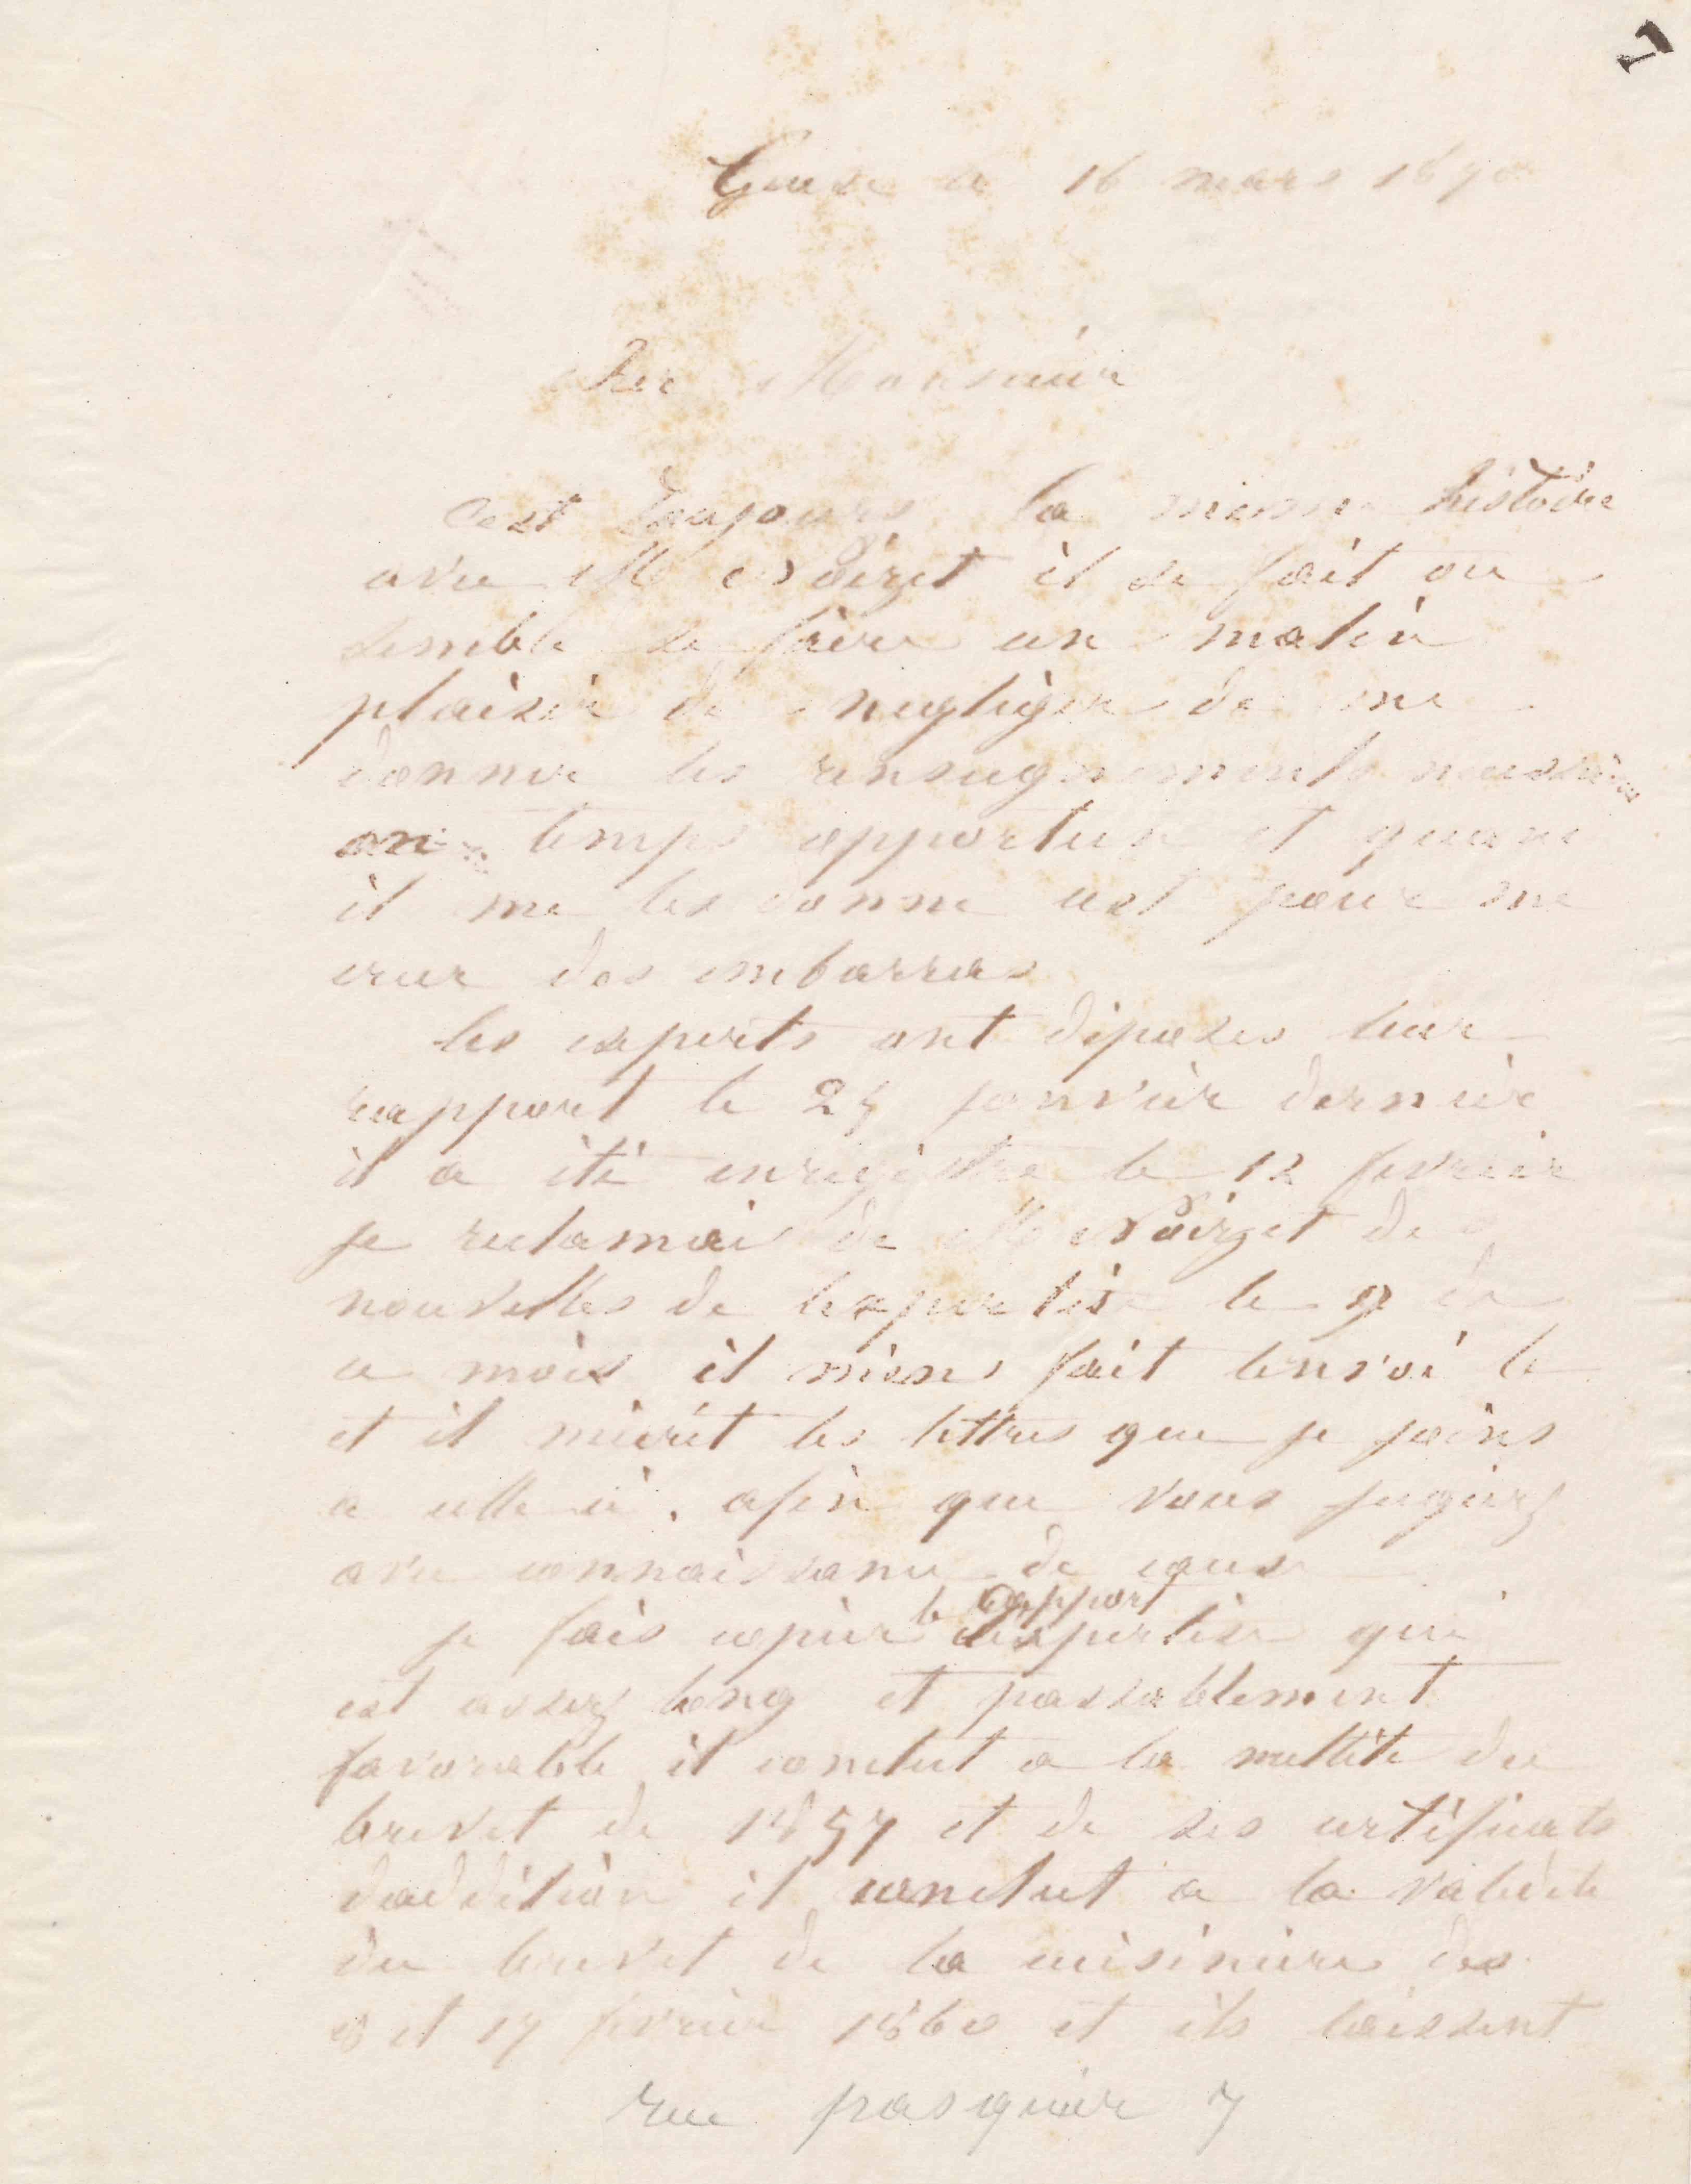 Guise le 16 mars 1870
Cher Monsieur
C'est toujours la meme histoire
avec M Noirot il se fait ou
semble se faire un malin
plaisir de negliger de me
donner les renseignements necessaires
en temps opportun et quand
il me les donne cest pour me
creer des embarras
les experts ont déposés leur
rapport le 25 janvier dernier
il a été enregistre le 12 fevrier
je reclamais de M Noirot des
nouvelles de lexpertise le 9 de
ce mois il mens fait lenvoi le
et il mecrit les lettres que je joins
a celle ci. afin que vous jugiez
avec connaissance de cause
je fais copier le rapport dexpertise qui
est assez long et passablement
favorable il conclut a la nullité du
brevet de 1857 et de ses certificats
daddition il conclut a la validité
du brevet de la cuisiniere des
8 et 17 fevrier 1860 et ils laissent
rue pasquier 7